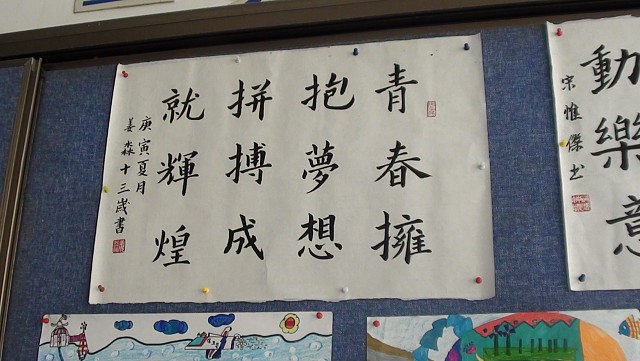 青春擁
抱夢想
拼搏成
就輝煌
庚寅夏月
姜淼十三歲書
動樂意
宗惟傑书